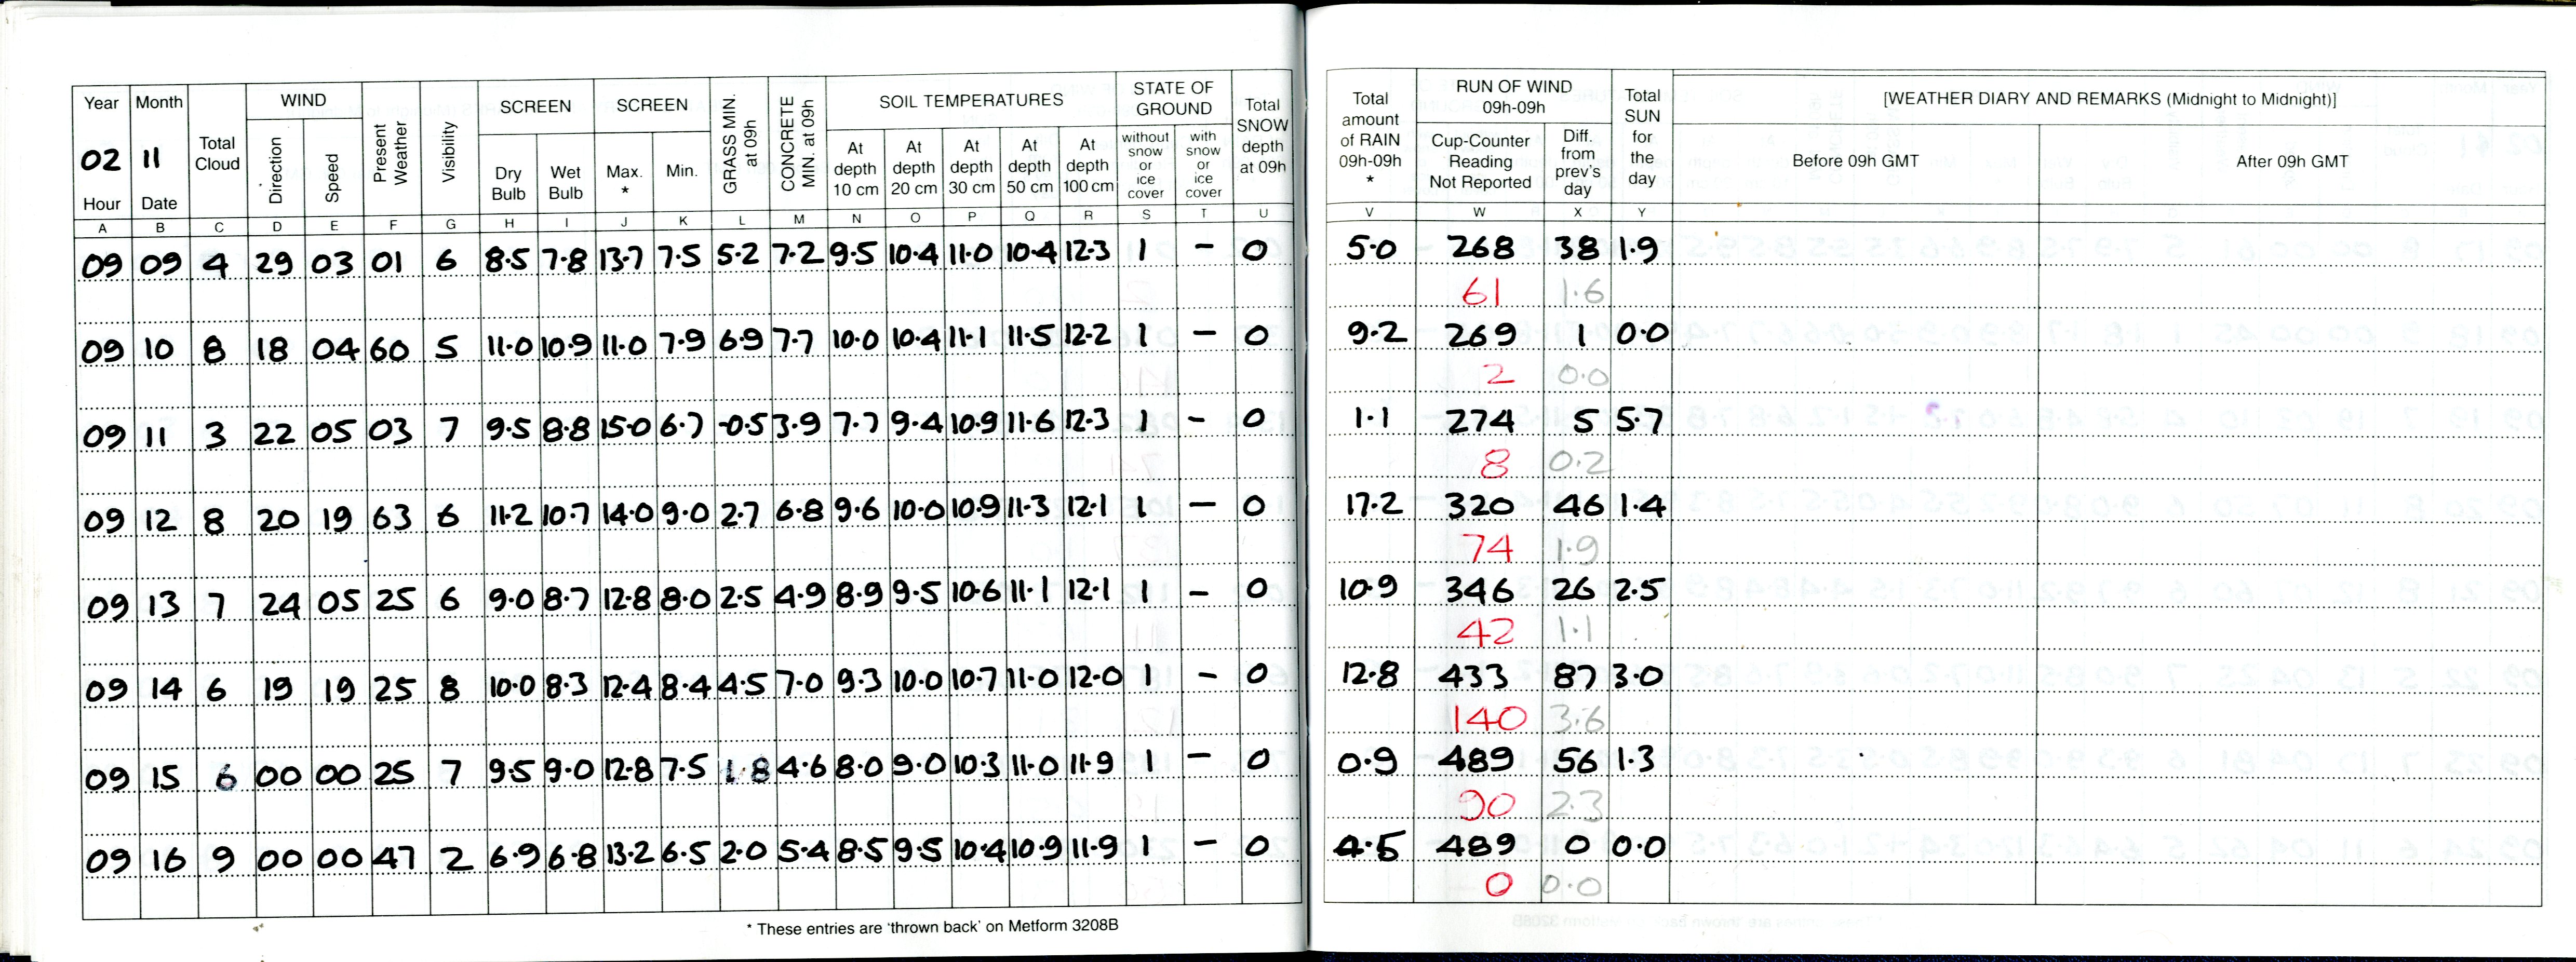 Year Month Total Cloud WIND Present Weather Visibility SCREEN SCREEN GRASS MIN. at 09h CONCRETE MIN. at 09h SOIL TEMPERATURES STATE OF GROUND Total SNOW depth at 09h
02 11 Direction Speed Dry Bulb Wet Bulb Max. * Min. At depth 10 cm At depth 20 cm At depth 30 cm At depth 50 cm At depth 100 cm without snow or ice cover with snow or ice cover
Hour Date
A B C D E F G H I J K L M N O P Q R S T U
09 09 4 29 03 01 6 8.5 7.8 13.7 7.5 5.2 7.2 9.5 10.4 11.0 10.4 12.3 1 – 0
09 10 8 18 04 60 5 11.0 10.9 11.0 7.9 6.9 7.7 10.0 10.4 11.1 11.5 12.2 1 – 0
09 11 3 22 05 03 7 9.5 8.8 15.0 6.7 -0.5 3.9 7.7 9.4 10.9 11.6 12.3 1 – 0
09 12 8 20 19 63 6 11.2 10.7 14.0 9.0 2.7 6.8 9.6 10.0 10.9 11.3 12.1 1 – 0
09 13 7 24 05 25 6 9.0 8.7 12.8 8.0 2.5 4.9 8.9 9.5 10.6 11.1 12.1 1 – 0
09 14 6 19 19 25 8 10.0 8.3 12.4 8.4 4.5 7.0 9.3 10.0 10.7 11.0 12.0 1 – 0
09 15 6 00 00 25 7 9.5 9.0 12.8 7.5 1.8 4.6 8.0 9.0 10.3 11.0 11.9 1 – 0
09 16 9 00 00 47 2 6.9 6.8 13.2 6.5 2.0 5.4 8.5 9.5 10.4 10.9 11.9 1 – 0
* These entries are 'thrown back' on Metform 3208B
Total amount of RAIN 09h-09h * RUN OF WIND 09h-09h Total SUN for the day [WEATHER DIARY AND REMARKS (Midnight to Midnight)]
Cup-Counter Reading Not Reported Diff. from prev's day Before 09h GMT After 09h GMT
V W X Y
5.0 268 38 1.9
61 1.6
9.2 269 1 0.0
2 0.0
1.1 274 5 5.7
8 0.2
17.2 320 46 1.4
74 1.9
10.9 346 26 2.5
42 1.1
12.8 433 87 3.0
140 3.6
0.9 489 56 1.3
90 2.3
4.5 489 0 0.0
0 0.0